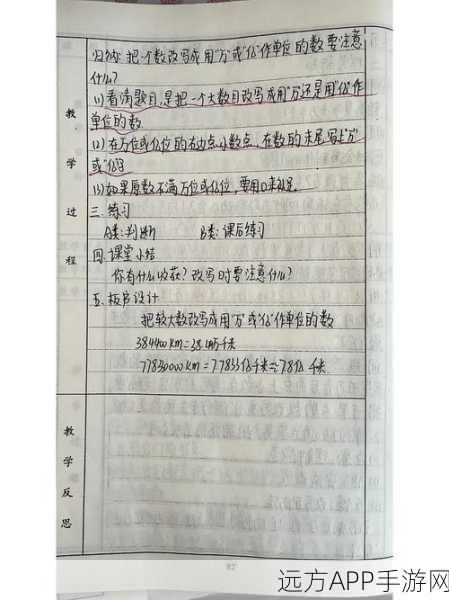 归纳:把一个数改写成用“万”或“亿”作单位的数要注意
什么?
(1)看清题目,是把一个大数目改写成用“万”还是用“亿”作
单位的数.
(2)在万位或亿位的右边点小数点,在数的末尾写上“万”
或“亿”字
(3)如果原数不满万位或亿位,要用0来补足.
三.练习
A类:判断 B类:课后练习
四.课堂小结
你有什么收获?改写时要注意什么?
五.板书设计
把较大数改写成用“万”或“亿”作单位的数
384400km=38.44万千米
=7.7833亿千米≈7.8亿千米
教学过程
教学反思
82
远方APP手游网